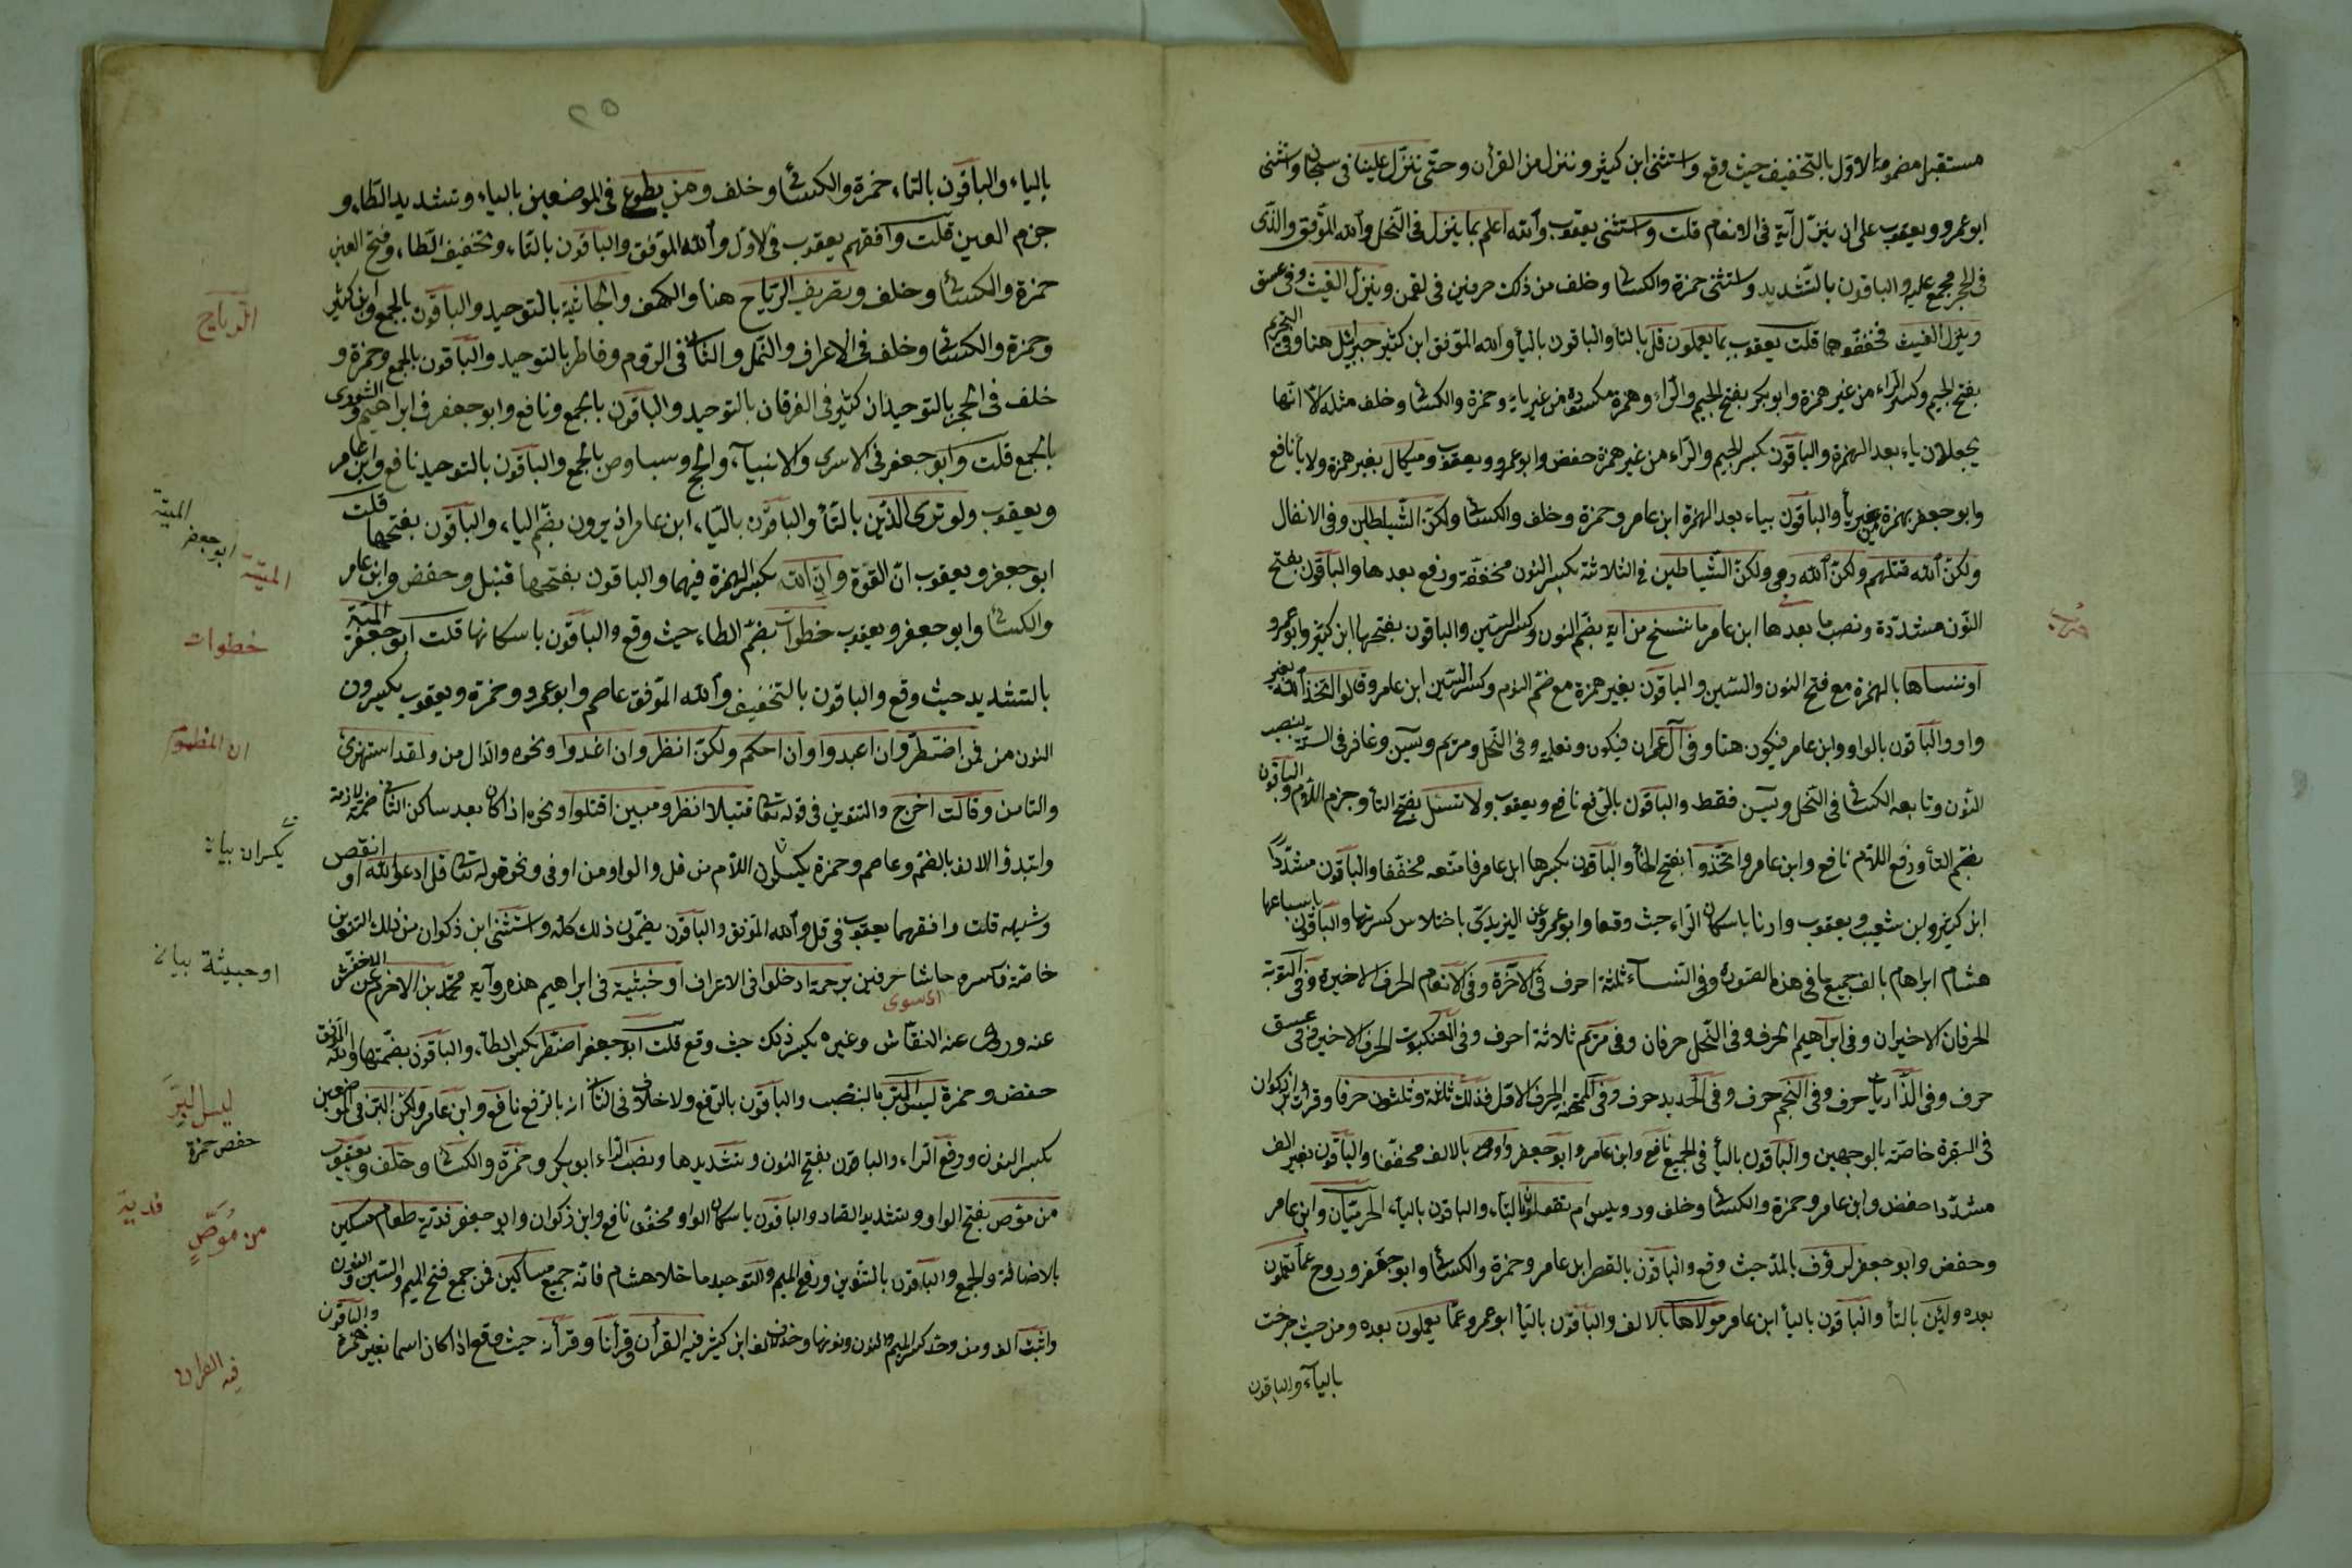 مستقبل مضموم الاول بالتخفيف حيث وقع واستثنى ابن كثير وننزل من القرآن وحتى تنزل علينا في سبحان واستثنى
ابو عمرو ويعقوب على ان ينزل آية في الانعام قلت واستثنى يعقوب والله اعلم بما ينزل في النحل والله الموفق والذي
في الحجر مجمع عليه والباقون بالتشديد واستثنى حمزة والكسائي وخلف من ذلك حرفين في لقمن وينزل الغيث وفي عسق
وينزل الغيث فخففوهما قلت يعقوب بما يعملون قل بالتا والباقون باليا والله الموفق ابن كثير جبريل هنا وفي التحريم
بفتح الجيم وكسر الراء من غير همزة وابو بكر بفتح الجيم والراء وهمزة مكسورة من غير ياء وحمزة والكسائي وخلف مثله الا انهما
يجعلان ياء بعد الهمزة والباقون بكسر الجيم والراء من غير همزة حفص وابو عمرو ويعقوب وميكال بغير همزة ولا يا نافع
وابو جعفر بهمزة من غير يا والباقون بياء بعد الهمزة ابن عامر وحمزة وخلف والكسائي ولكن الشياطين وفي الانفال
ولكن الله قتلهم ولكن الله رمى ولكن الشياطين في الثلاثة بكسر النون مخففة ورفع بعدها والباقون بفتح
النون مشددة ونصب ما بعدها ابن عامر ما ننسخ من آية بضم النون وكسر السين والباقون بفتحها ابن كثير وابو عمرو
او ننساها بالهمزة مع فتح النون والسين والباقون بغير همزة مع ضم النون وكسر السين ابن عامر وقالوا اتخذ الله بغير
واو والباقون بالواو وابن عامر فيكون هنا وفي آل عمران فيكون ونعلمه وفي النحل ومريم ويسن وغافر في الستة بنصب
النون وتابعه الكسائي في النحل ويسن فقط والباقون بالرفع نافع ويعقوب ولا تسئل بفتح التا وجزم اللام والباقون
بضم التا ورفع اللام نافع وابن عامر واتخذوا بفتح الخا والباقون بكسرها ابن عامر فامتعه مخففا والباقون مشددا
ابن كثير وابو شعيب ويعقوب وارنا باسكان الراء حيث وقعا وابو عمرو عن اليزيدي باختلاس كسرتها والباقون باشباعها
هشام ابراهام بالف جميع ما في هذه السورة وفي النساء ثلثة احرف في الآخرة وفي الانعام الحرف الاخير وفي التوبة
الحرفان الاخيران وفي ابراهيم الحرف وفي النحل حرفان وفي مريم ثلاثة احرف وفي العنكبوت الحرف الاخير وفي عسق
حرف وفي الذاريات حرف وفي النجم حرف وفي الحديد حرف وفي الممتحنة الحرف الاول فذلك ثلثة وثلثون حرفا وقرات لابن ذكوان
في البقرة خاصة بالوجهين والباقون باليا في الجميع نافع وابن عامر وابو جعفر واوصى بالالف مخففا والباقون بغير الف
مشددا حفص وابن عامر وحمزة والكسائي وخلف ورويس ام تقولون بالتاء والباقون بالياء الحرميان وابن عامر
وحفص وابو جعفر لرؤف بالمد حيث وقع والباقون بالقصر ابن عامر وحمزة والكسائي وابو جعفر وروح عما تعملون
بعده ولئن بالتا والباقون باليا ابن عامر مولاها بالالف والباقون باليا ابو عمرو عما يعملون بعده ومن حيث خرجت
بالياء والباقون
٢٥
بالياء والباقون بالتاء حمزة والكسائي وخلف ومن يطوع في الموضعين بالياء وتشديد الطاء و
جزم العين قلت وافقهم يعقوب في الاول والله الموفق والباقون بالتاء وتخفيف الطاء وفتح العين
حمزة والكسائي وخلف وتصريف الرياح هنا والكهف والجاثية بالتوحيد والباقون بالجمع وابن كثير
وحمزة والكسائي وخلف في الاعراف والنمل والثاني في الروم وفاطر بالتوحيد والباقون بالجمع وحمزة و
خلف في الحجر بالتوحيد ابن كثير في الفرقان بالتوحيد والباقون بالجمع ونافع وابو جعفر في ابراهيم والشورى
بالجمع قلت وابو جعفر في الاسرى والانبياء والحج وسبا وص بالجمع والباقون بالتوحيد نافع وابن عامر
ويعقوب ولو ترى الذين بالتا والباقون بالياء ابن عامر اذ يرون بضم الياء والباقون بفتحها قلت
ابو جعفر ويعقوب ان القوة وان الله بكسر الهمزة فيهما والباقون بفتحها قنبل وحفص وابن عامر
والكسائي وابو جعفر ويعقوب خطوات بضم الطاء حيث وقع والباقون باسكانها قلت ابو جعفر الميتة
بالتشديد حيث وقع والباقون بالتخفيف والله الموفق عاصم وابو عمرو وحمزة ويعقوب يكسرون
النون من فمن اضطر وان اعبدوا وان احكم ولكن انظر وان اغدوا ونحوه والدال من ولقد استهزئ
والتا من وقالت اخرج والتنوين في قوله تعالى فتيلا انظر ومبين اقتلوا ونحوه اذا كان بعد ساكن الثاني ضمة لازمة
وابتدؤ الالف بالضم وعاصم وحمزة يكسران اللام من قل والواو من او في ونحو قوله تعالى قل ادعوا الله او انقص
وشبهه قلت وافقهما يعقوب في قل والله الموفق والباقون يضمون ذلك كله واستثنى ابن ذكوان من ذلك التنوين
خاصة فكسره حاشا حرفين برحمة ادخلوا في الاعراف او خبيثة في ابراهيم هذه رواية محمد بن الاخرم عن الاخفش
عنه وروى عنه النقاش وغيره بكسر ذلك حيث وقع قلت ابو جعفر اضطر بكسر الطاء والباقون بضمها والله الموفق
حفص وحمزة ليس البر بالنصب والباقون بالرفع ولا خلاف في الثاني انه بالرفع نافع وابن عامر ولكن البر في الموضعين
بكسر النون ورفع الراء والباقون بفتح النون وتشديدها ونصب الراء ابو بكر وحمزة والكسائي وخلف ويعقوب
من موص بفتح الواو وتشديد الصاد والباقون باسكان الواو مخففا نافع وابن ذكوان وابو جعفر فدية طعام مسكين
بالاضافة والجمع والباقون بالتنوين ورفع الميم والتوحيد ما خلا هشام فانه جمع مساكين فمن جمع فتح الميم والسين والنون
واثبت الف ومن وحد كسر الميم والنون ونونها وحذف الفا ابن كثير فيه القرآن وقرآنا وقرآنه حيث وقع اذا كان اسما بغير همزة والباقون
الرياح
الميتة
ابو جعفر
الميتة
خطوات
يكسران بيان
او خبيثة بيان
اي سوى
ليس البر
حفص حمزة
فدية
من موص
فيه القران